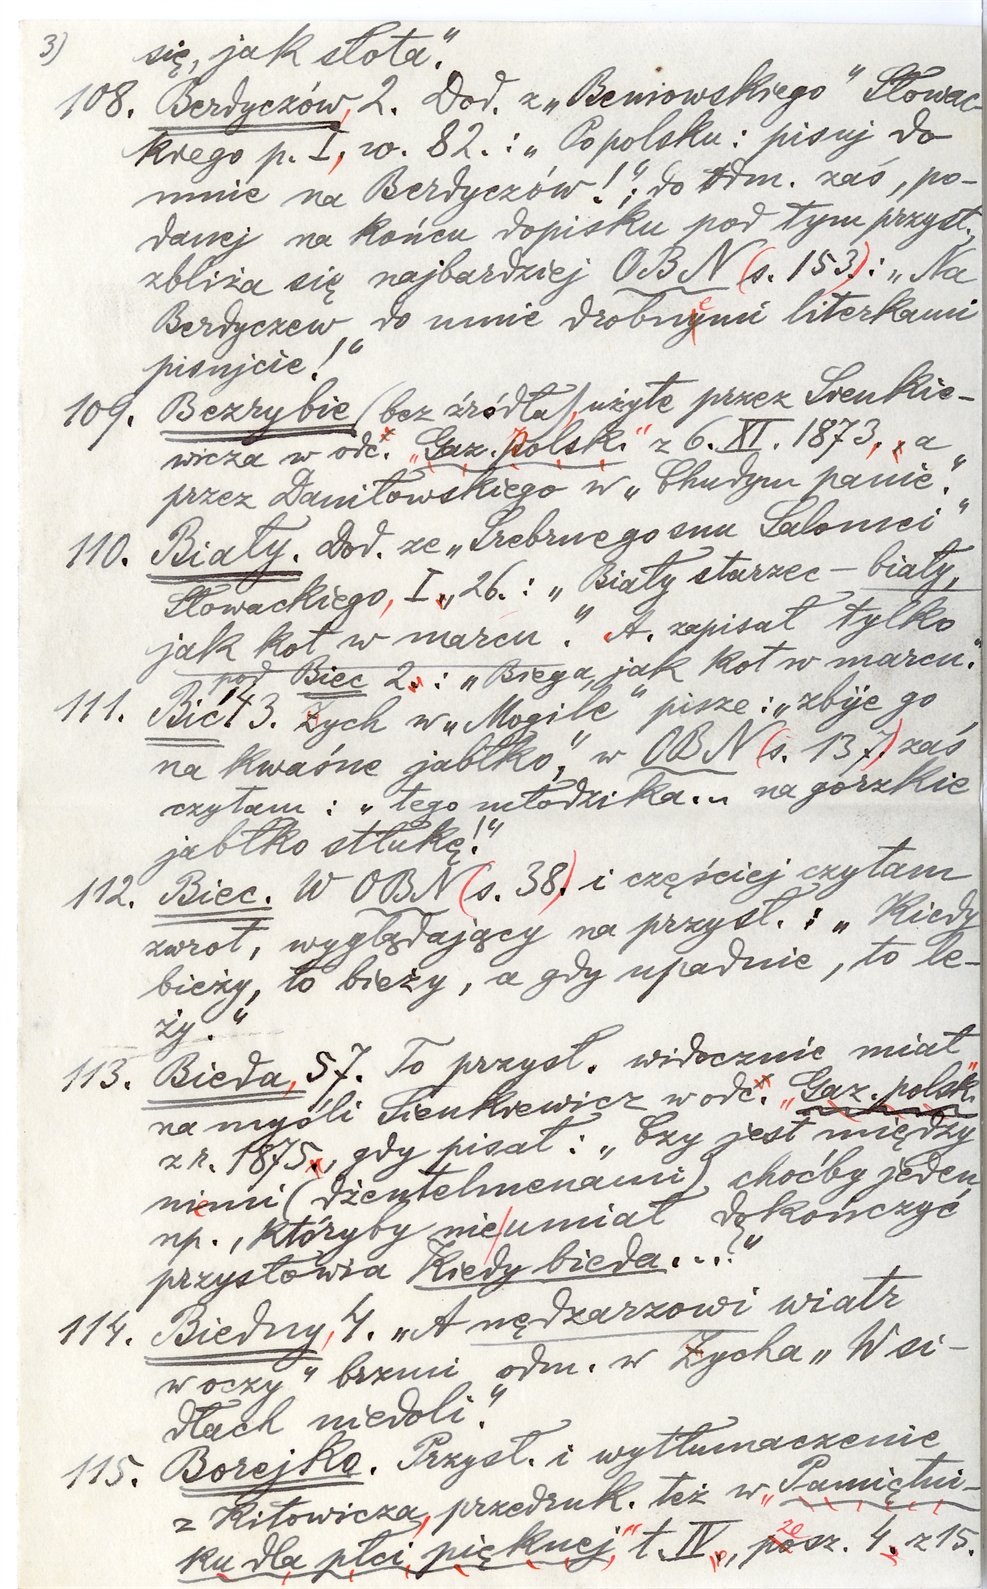 3)
się, jak słota."
108. Berdyczów, 2. Dod. z „Beniowskiego" Słowac-
kiego p. I, w. 82.: „Po polsku: pisuj do
mnie na Berdyczów!"; do odm. zaś, po-
danej na końcu dopisku pod tym przysł.,
zbliża się najbardziej OBN (s. 153): „Na
Berdyczew do mnie drobnemi literkami
pisujcie!"
109. Bezrybie (bez źródła), użyte przez Sienkie-
wicza w odc. „Gaz. polsk." z 6. XI. 1873, a
przez Daniłowskiego w „Chudym panie".
110. Biały. Dod. ze „Srebrnego snu Salomei"
Słowackiego, I, 26.: „Biały starzec – biały,
jak kot w marcu." A. zapisał tylko
pod Biec 2.: „Biega, jak kot w marcu."
111. Bić 43. Zych w „Mogile" pisze: „zbije go
na kwaśne jabłko", w OBN (s. 137) zaś
czytam: „tego młodzika... na gorzkie
jabłko stłukę!"
112. Biec. W OBN (s. 38.) i częściej czytam
zwrot, wyglądający na przysł.: „Kiedy
bieży, to bieży, a gdy upadnie, to le-
ży."
113. Bieda, 57. To przysł. widocznie miał
na myśli Sienkiewicz w odc. „Gaz. polsk."
z r. 1875., gdy pisał: „Czy jest między
niemi (dżentelmenami) choćby jeden,
np., któryby nie umiał dokończyć
przysłowia Kiedy bieda...?"
114. Biedny, 4. „A nędzarzowi wiatr
w oczy" brzmi odm. w Zycha „W si-
dłach niedoli."
115. Borejko. Przysł. i wytłumaczenie
z Kitowicza, przedruk. też w „Pamiętni-
ku dla płci pięknej" t. IV., zesz. 4. z 15.